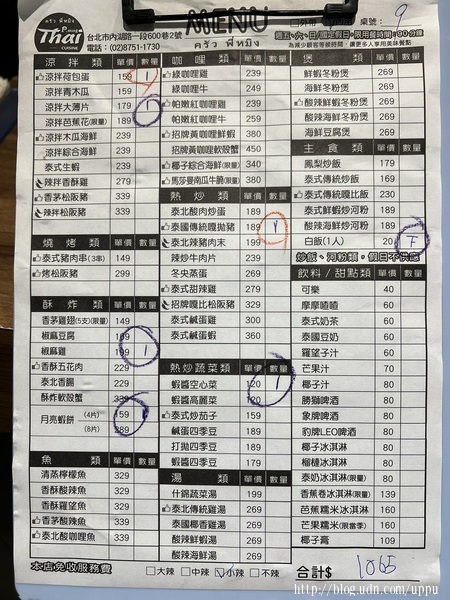 MENU
Thai
CUISINE
台北市內湖路一段600巷2號
電話：(02)8751-1730
ครัว พี่หญิง
桌號： 9
為減少顧客等候時間，讓更多人享用美味餐點
涼拌類 單價 數量
涼拌荷包蛋 159 1
涼拌青木瓜 159
涼拌大薄片 179
涼拌芭蕉花(限量) 189
涼拌木瓜海鮮 239
涼拌綜合海鮮 239
泰式生蝦 239
辣拌香酥雞 279
香茅松阪豬 339
辣拌松阪豬 339
燒烤類 單價 數量
泰式豬肉串(3串) 149
烤松阪豬 299
酥炸類 單價 數量
香茅雞翅(5支)(限量) 149
椒麻豆腐 169
椒麻雞 199 1
香酥五花肉 229
泰北香腸 229
酥炸軟殼蟹 339
月亮蝦餅 (4片) 159
(8片) 289
魚類 單價 數量
清蒸檸檬魚 329
香酥酸辣魚 329
香酥羅望魚 329
香茅酸辣魚 339
泰北酸咖哩魚 339
咖哩類 單價 數量
綠咖哩雞 239
綠咖哩牛 249
帕嫩紅咖哩雞 239
帕嫩紅咖哩牛 259
招牌黃咖哩鮮蝦 380
招牌黃咖哩軟殼蟹 450
椰子綜合海鮮(限量) 340
馬莎曼南瓜牛腩(限量) 380
熱炒 單價 數量
泰北酸肉炒蛋 189
泰國傳統嘎拋豬 189 1
泰北辣豬肉末 199
辣炒牛肉片 239
冬央蒸蛋 269
泰式甜辣雞 279
招牌嘎比松阪豬 329
泰式鹹蛋雞 300
泰式鹹蛋蝦 360
熱炒蔬菜類 單價 數量
蝦醬空心菜 120 1
蝦醬高麗菜 120
泰式炒茄子 159
鹹蛋四季豆 189
打拋四季豆 189
蝦醬四季豆 189
湯類 單價 數量
什錦蔬菜湯 199
泰北傳統雞湯 249
泰國椰香雞湯 249
酸辣鮮蝦湯 269
酸辣海鮮湯 269
煲類 單價 數量
鮮蝦冬粉煲 269
海鮮冬粉煲 269
酸辣鮮蝦冬粉煲 269
酸辣海鮮冬粉煲 269
海鮮豆腐煲 269
主食類 單價 數量
鳳梨炒飯 179
泰式傳統炒飯 169
泰式傳統嘎比飯 230
泰式鮮蝦炒河粉 189
酸辣海鮮炒河粉 189
白飯(1人) 20
炒飯、河粉類，假日不供應
飲料／甜點類 單價 數量
可樂 40
摩摩喳喳 60
泰式奶茶 60
泰國豆奶 60
羅望子汁 60
芒果汁 70
椰子汁 80
勝獅啤酒 80
象牌啤酒 80
豹牌LEO啤酒 80
椰子冰淇淋 80
榴槤冰淇淋 80
泰奶冰淇淋(限量) 80
香蕉卷冰淇淋(限量) 139
芭蕉糯米冰淇淋 160
芒果糯米(限當季) 160
椰子膏 109
本店免收服務費
大辣 中辣 小辣 不辣 合計$ 1065
http://blog.udn.com/uppu